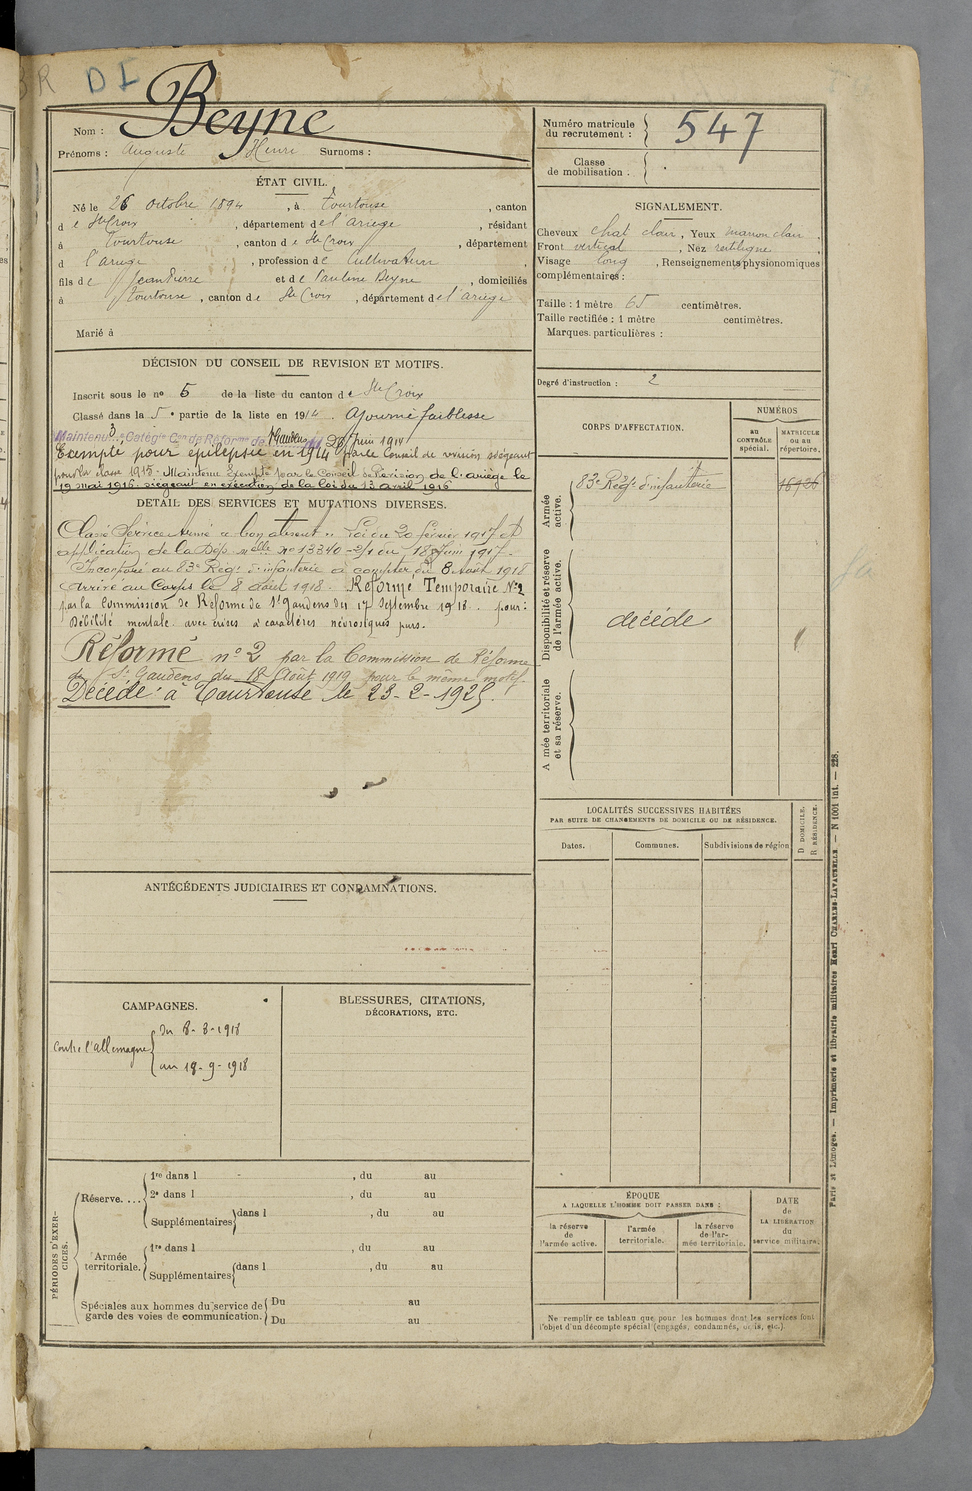 DI
Nom : Beyne
Prénoms : Auguste Henri Surnoms :
ÉTAT CIVIL.
Né le 26 Octobre 1894, à Tourtouse, canton
de Ste Croix, département de l'Ariège, résidant
à Tourtouse, canton de Ste Croix, département
d l'ariège, profession de Cultivateur,
fils de Jean Pierre et de Pauline Beyne, domiciliés
à Tourtouse, canton de Ste Croix, département de l'ariège
Marié à
DÉCISION DU CONSEIL DE REVISION ET MOTIFS.
Inscrit sous le no 5 de la liste du canton de Ste Croix
Classé dans la 5e partie de la liste en 1914. Ajourné faiblesse
Maintenu 3e Catégie Con de Réforme de St Gaudens du 26 Juin 1917
Exempté pour épilepsie en 1914 par le Conseil de révision siégeant
pour la classe 1915. Maintenu Exempté par le Conseil de Révision de l'ariège le
19 mai 1916 siégeant en exécution de la loi du 13 avril 1916
DÉTAIL DES SERVICES ET MUTATIONS DIVERSES.
Classé Service Armé "bon absent" Loi du 20 février 1917 et
application de la Dép. melle no 13340-2/1 du 18 Juin 1917.
Incorporé au 83e Régt d'infanterie à compter du 8 août 1918
Arrivé au Corps le 8 août 1918. Réformé Temporaire No 2
par la Commission de Réforme de St Gaudens du 17 Septembre 1918. pour :
Débilité mentale avec crises à caractères névrosiques purs.
Réformé no 2 par la Commission de Réforme
de St Gaudens du 18 Août 1919 pour le même motif.
Décédé à Tourtouse le 23-2-1925.
ANTÉCÉDENTS JUDICIAIRES ET CONDAMNATIONS.
CAMPAGNES.
Contre l'allemagne
du 8-8-1918
au 18-9-1918
BLESSURES, CITATIONS,
DÉCORATIONS, ETC.
PÉRIODES D'EXERCICES.
Réserve....
1re dans l , du au
2e dans l , du au
Supplémentaires dans l , du au
Armée territoriale.
1re dans l , du au
Supplémentaires dans l , du au
Spéciales aux hommes du service de
garde des voies de communication.
Du au
Du au
Numéro matricule
du recrutement : 547
Classe
de mobilisation :
SIGNALEMENT.
Cheveux chat clair, Yeux marron clair,
Front vertical, Nez rectiligne
Visage long, Renseignements physionomiques
complémentaires :
Taille : 1 mètre 65 centimètres.
Taille rectifiée : 1 mètre centimètres.
Marques particulières :
Degré d'instruction : 2
CORPS D'AFFECTATION.
NUMÉROS
au CONTRÔLE spécial.
MATRICULE ou au répertoire.
Armée active.
83e Régt d'infanterie
16126
Disponibilité et réserve de l'armée active.
décédé
A mée territoriale et sa réserve.
LOCALITÉS SUCCESSIVES HABITÉES
PAR SUITE DE CHANGEMENTS DE DOMICILE OU DE RÉSIDENCE.
Dates.
Communes.
Subdivisions de région
D. DOMICILE.
R. RÉSIDENCE.
ÉPOQUE
A LAQUELLE L'HOMME DOIT PASSER DANS :
la réserve de l'armée active.
l'armée territoriale.
la réserve de l'armée territoriale.
DATE de LA LIBÉRATION du service militaire.
Ne remplir ce tableau que pour les hommes dont les services font
l'objet d'un décompte spécial (engagés, condamnés, omis, etc.)
Paris et Limoges. — Imprimerie et librairie militaires Henri CHARLES-LAVAUZELLE. — N 1001 int. — 228.